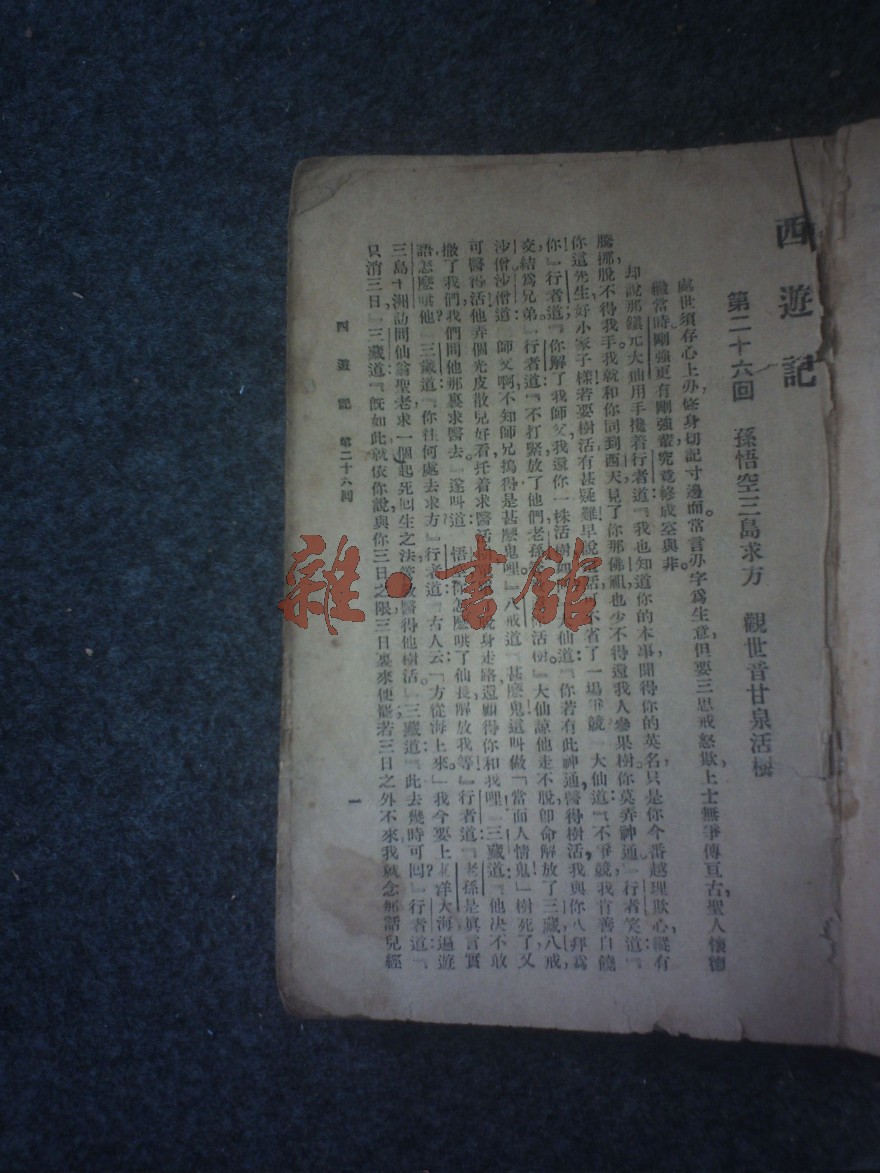 西遊記
第二十六回　孫悟空三島求方　觀世音甘泉活樹
處世須存心上刃，修身切記寸邊而。常言刃字爲生意，但要三思戒怒欺。上士無爭傳亙古，聖人懷德
繼當時。剛強更有剛強輩，究竟修成空與非。
却說那鎮元大仙用手攙着行者道：『我也知道你的本事，聞得你的英名，只是你今番越理欺心，縱有
騰挪，脫不得我手。我就和你同到西天見了你那佛祖，也少不得還我人參果樹。你莫弄神通。』行者笑道：『
你這先生，好小家子樣！若要樹活，有甚疑難！早說
不省了一場爭競。』大仙道：『不爭競，我肯善自饒
你！』行者道：『你解了我師父，我還你一株活樹如
大仙道：『你若有此神通，醫得樹活，我與你八拜爲
交，結爲兄弟。』行者道：『不打緊，放了他們，老孫
活樹。』大仙諒他走不脫，即命解放了三藏八戒
沙僧。沙僧道：『師父啊，不知師兄搗得是甚麼鬼哩。』八戒道：『甚麼鬼！這叫做「當面人情鬼」！樹死了，又
可醫得活？他弄個光皮散兒好看，托着求醫活
身走路，還顧得你和我哩！』三藏道：『他決不敢
撤了我們，我們問他那裏求醫去。』遂叫道：『悟
你怎麼哄了仙長，解放我等？』行者道：『老孫是眞言實
語，怎麼哄他？』三藏道：『你往何處去求方？』行者道：『古人云：「方從海上來。」我今要上東洋大海，遍遊
三島十洲，訪問仙翁聖老，求一個起死回生之法，
醫得他樹活。』三藏道：『此去幾時可回？』行者道：『
只消三日。』三藏道：『旣如此，就依你說，與你三日之限。三日裏來便罷，若三日之外不來，我就念那話兒經
西遊記　第二十六回
一
雜·書館